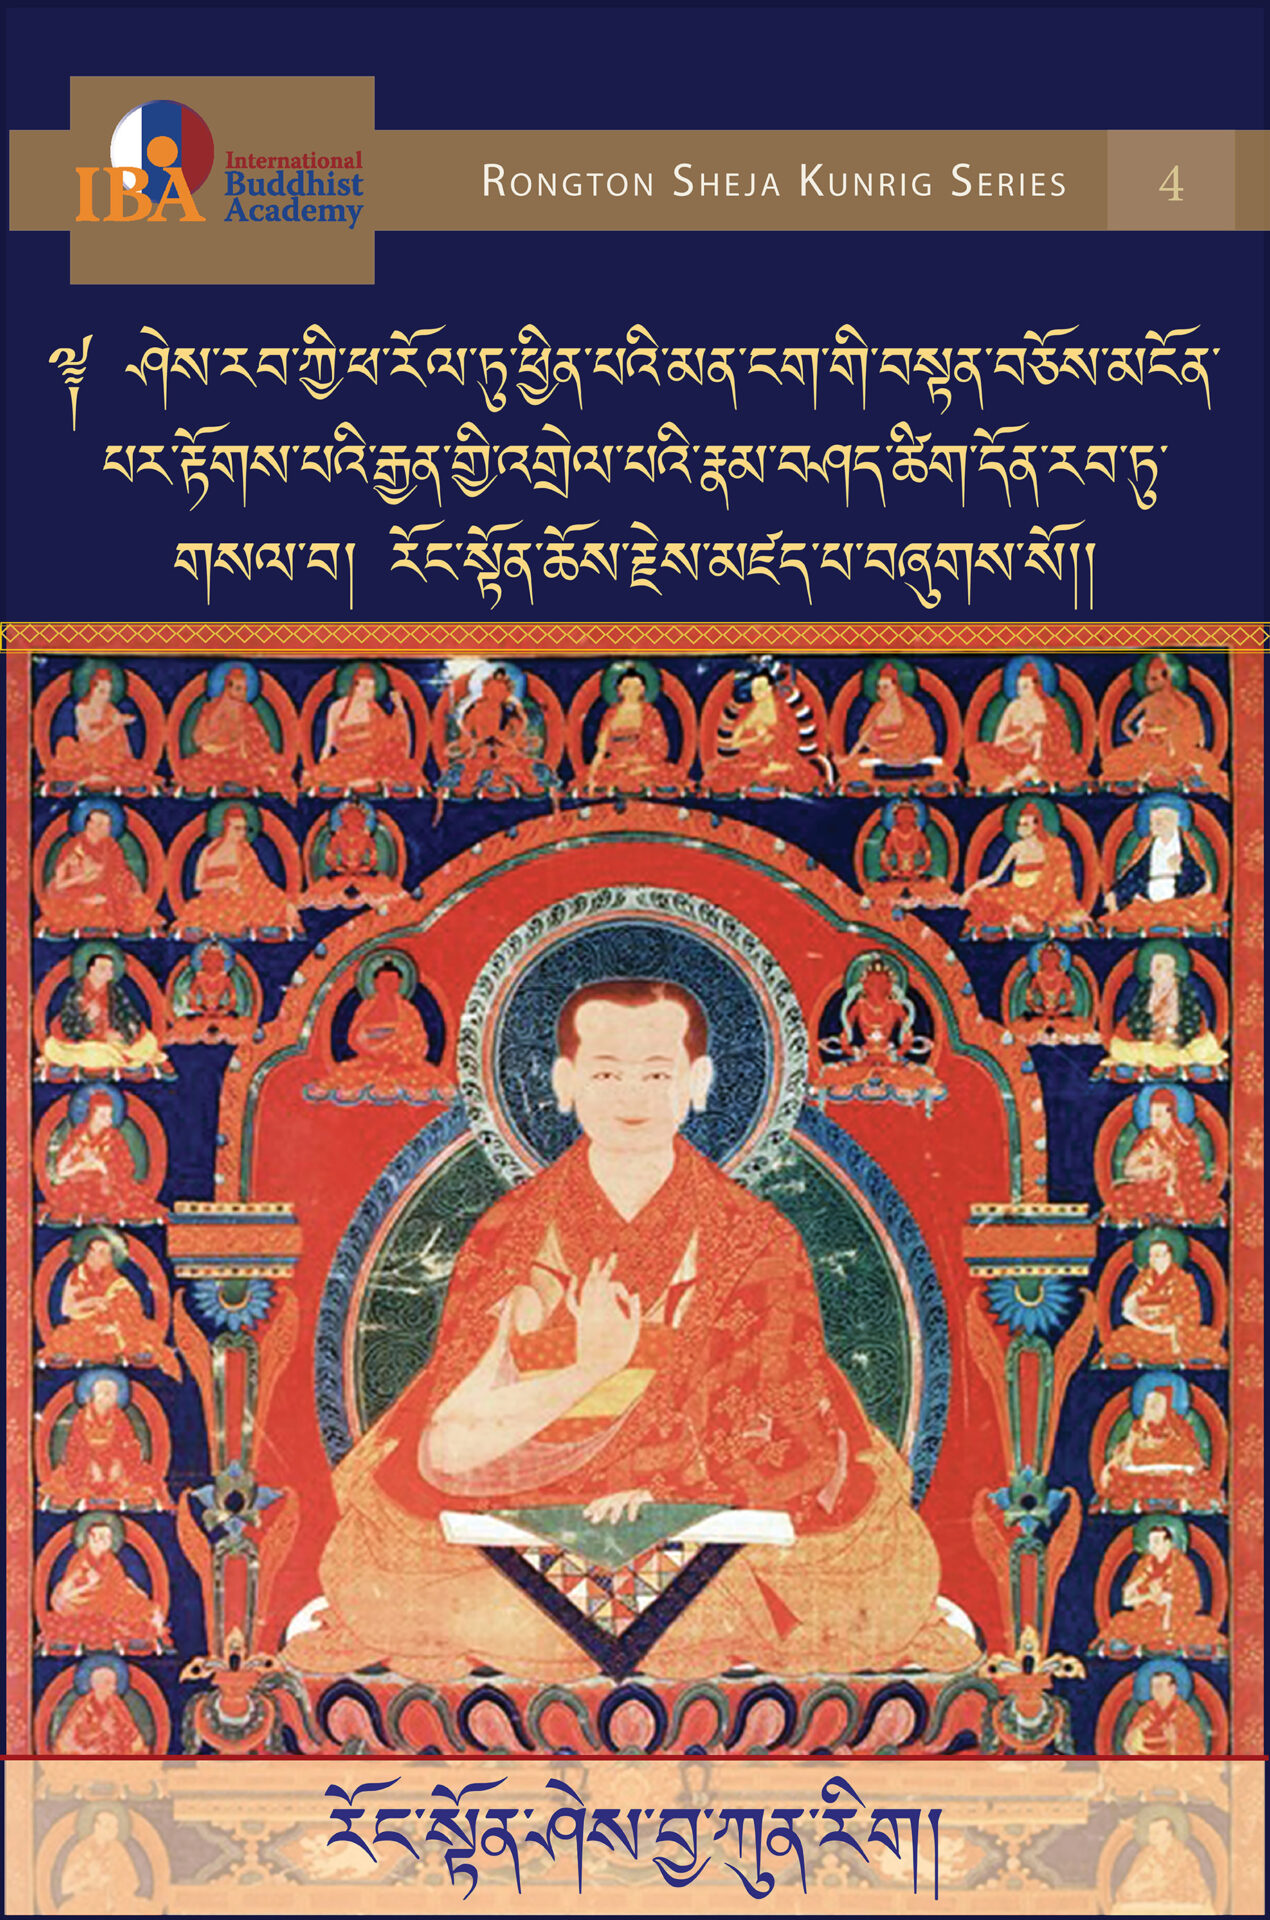 IBA
International
Buddhist
Academy
Rongton Sheja Kunrig Series
4
༄། ཤེས་རབ་ཀྱི་ཕ་རོལ་ཏུ་ཕྱིན་པའི་མན་ངག་གི་བསྟན་བཅོས་མངོན་
པར་རྟོགས་པའི་རྒྱན་གྱི་འགྲེལ་པའི་རྣམ་བཤད་ཚིག་དོན་རབ་ཏུ་
གསལ་བ། རོང་སྟོན་ཆོས་རྗེས་མཛད་པ་བཞུགས་སོ།།
རོང་སྟོན་ཤེས་བྱ་ཀུན་རིག།